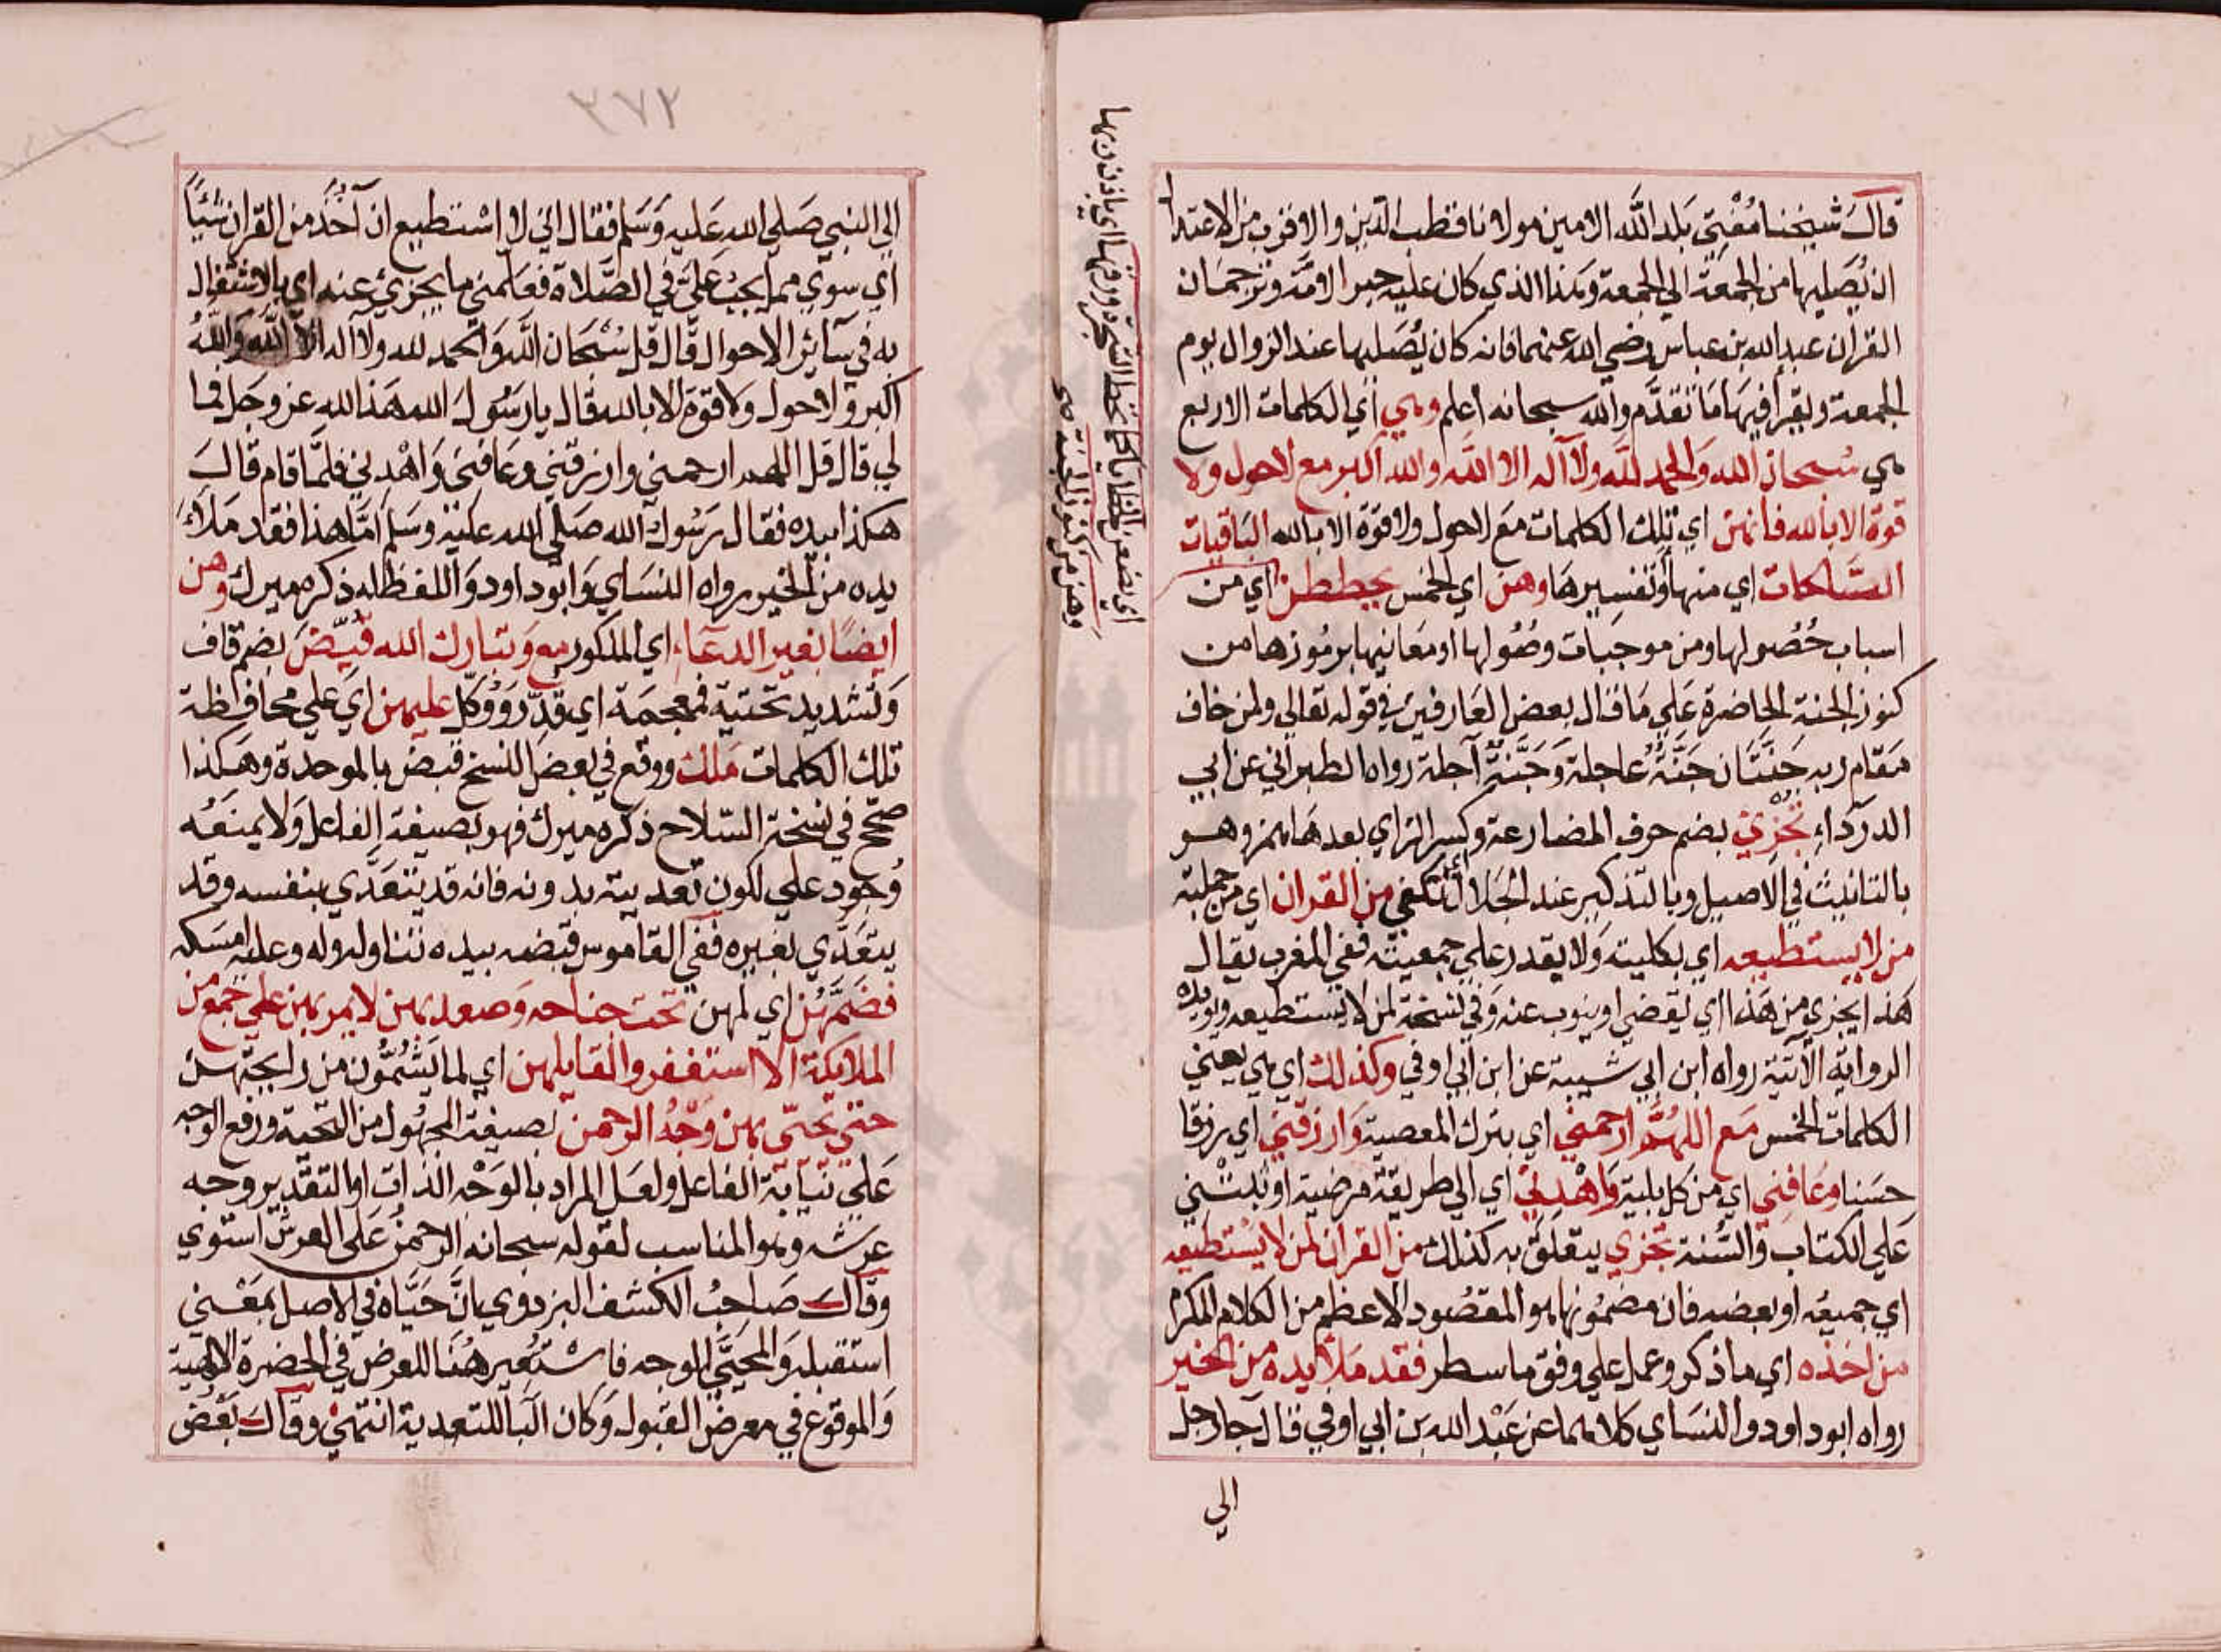 قال شيخنا مفتي بلد الله الامين مولانا قطب الدين والاقرب من الاعتدال
ان يصليها من الجمعة الي الجمعة وهذا الذي كان عليه حبر الامة وترجمان
القران عبد الله بن عباس رضي الله عنهما فانه كان يصليها عند الزوال يوم
الجمعة ويقرأ فيها ما تقدم والله سبحانه اعلم وهي أي الكلمات الاربع
هي سبحان الله والحمد لله ولا اله الا الله والله اكبر مع لاحول ولا
قوة الا بالله فانهن اي تلك الكلمات مع لاحول ولا قوة الا بالله الباقيات
الصالحات اي منها أو تفسيرها وهن اي الخمس يحططن اي من
اسباب حصولها ومن موجبات وصولها او معانيها برموزها من
كنوز الجنة الحاضرة علي ما قال بعض العارفين في قوله تعالي ولمن خاف
مقام ربه جنتان جنة عاجلة وجنة آجلة رواه الطبراني عن ابي
الدرداء تجزئ بضم حرف المضارعة وكسر الزاي بعدها همز وهو
بالتانيث في الاصيل وبالتذكير عند الجلال أي تكفي من القران اي من جملته
من لا يستطيعه اي بكليته ولا يقدر علي جمعيته ففي المغرب يقال
هذا يجزي من هذا اي يقضي او ينوب عنه وفي نسخة لمن لا يستطيعه ويؤيده
الرواية الآتية رواه ابن ابي شيبة عن ابن ابي اوفي وكذلك اي هي يعني
الكلمات الخمس مع اللهم ارحمني اي بترك المعصية وارزقني اي رزقا
حسنا وعافني اي من كل بلية واهدني اي الي طريقة مرضية او ثبتني
علي الكتاب والسنة تجزي يتعلق به كذلك من القران لمن لا يستطيعه
اي جميعه او بعضه فان مضمونها هو المقصود الاعظم من الكلام المكرم
من اخذه اي ما ذكر وعمل علي وفق ما سطر فقد ملأ يده من الخير
رواه ابو داود والنسائي كلاهما عن عبد الله بن ابي اوفي قال جا رجل
الي
اي يضعن الخطايا كما تحط الشجرة ورقها اي باذن ربها
وهن من كنوز الجنة صح
٣٧٢
الي النبي صلي الله عليه وسلم فقال اني لا استطيع ان آخذ من القران شيئا
أي سوي مما يجب علي في الصلاة فعلمني ما يجزئ عنه اي بالاشتغال
به في سائر الاحوال قال قل سبحان الله والحمد لله ولا اله الا الله والله
اكبر ولاحول ولا قوة الا بالله قال يا رسول الله هذا لله عز وجل فما
لي قال قل اللهم ارحمني وارزقني وعافني واهدني فلما قام قال
هكذا بيده فقال رسول الله صلي الله عليه وسلم امّا هذا فقد ملأ
يده من الخير رواه النسائي وابو داود واللفظ له ذكره ميرك وهن
ايضا بغير الدعاء اي المذكور مع وتبارك الله قيض بضم قاف
وتشديد تحتية فمعجمة اي قدر ووكل عليهن اي علي محافظة
تلك الكلمات ملك ووقع في بعض النسخ قبض بالموحدة وهكذا
صحح في نسخة السلاح ذكره ميرك فهو بصيغة الفاعل ولا يمنعه
وجود علي لكون تعديته بدونه فانه قد يتعدي بنفسه وقد
يتعدي بغيره ففي القاموس قبضه بيده تناوله وله وعليه امسكه
فضمهن اي لهن تحت جناحه وصعد بهن لا يمر بهن علي جمع من
الملائكة الا استغفروا لقايلهن اي لما يشمون من رايحتهن
حتي تحيى بهن وجه الرحمن بصيغة المجهول من التحية ورفع الوجه
علي نيابة الفاعل ولعل المراد بالوجه الذات او التقدير وجه
عرشه وهو المناسب لقوله سبحانه الرحمن على العرش استوي
وقال صاحب الكشف البزدوي بان حياه في الاصل بمعني
استقبله والمحيى الوجه فاستعير هنا للعرض في الحضرة الالهية
والوقوع في معرض القبول وكان البا للتعدية انتهي وقال بعض